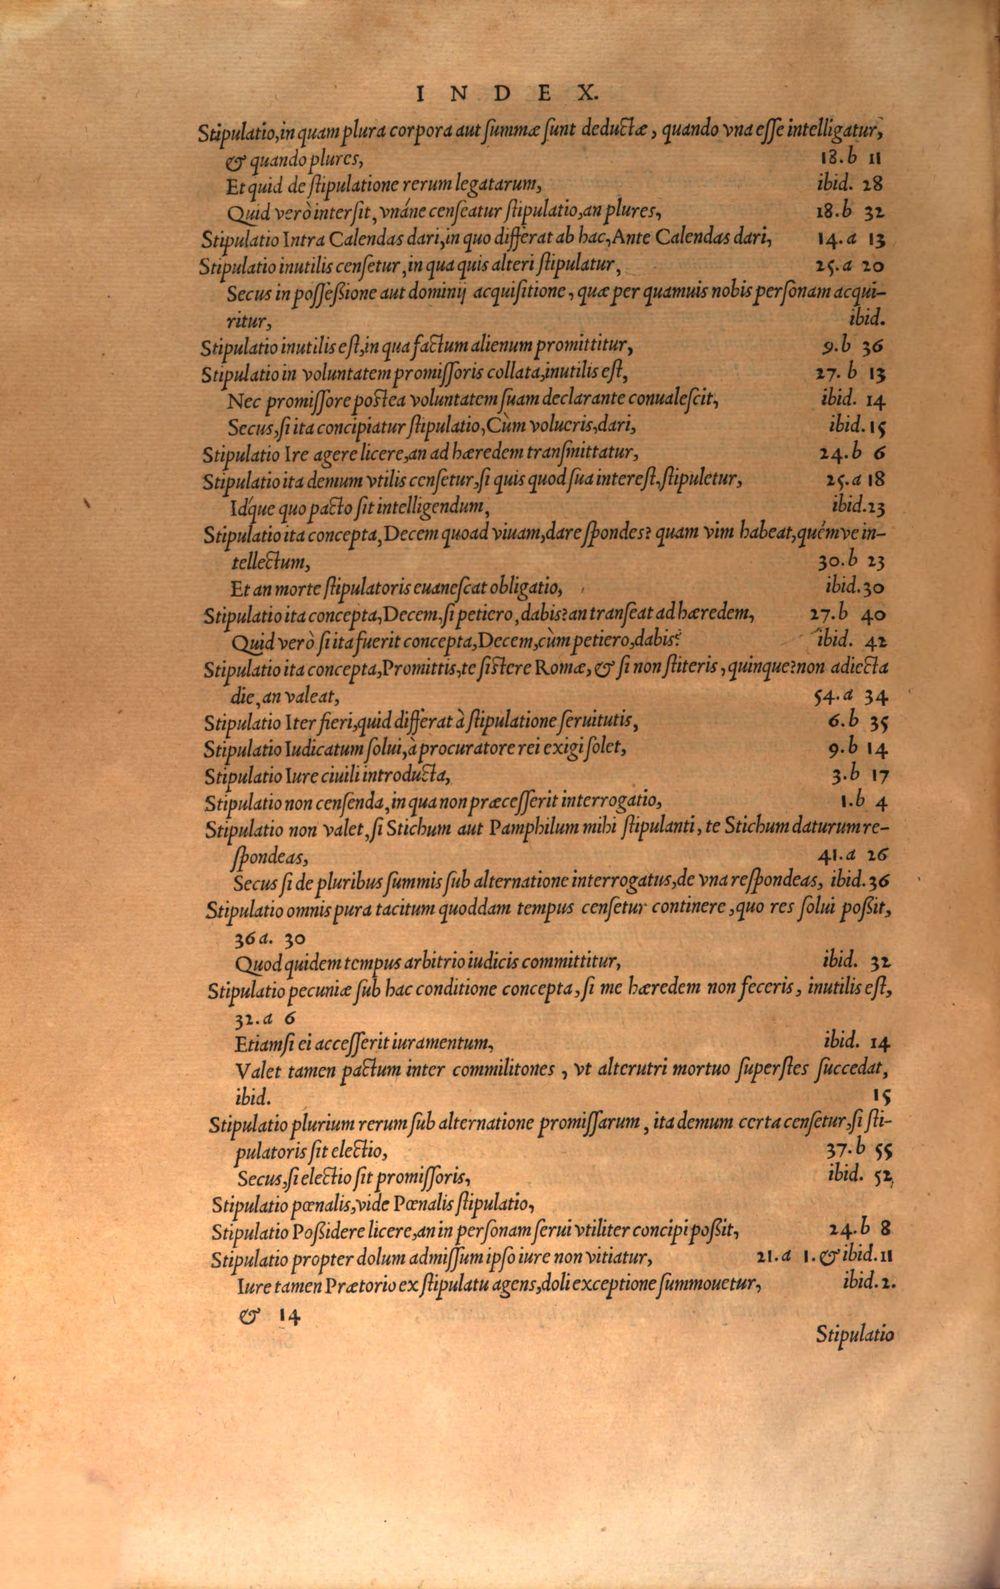 INDEX.
Stipulatio, in quam plura corpora aut summæ sunt deductæ, quando vna esse intelligatur,
& quando plures, 18.b 11
Et quid de stipulatione rerum legatarum, ibid. 28
Quid verò intersit, vnáne censeatur stipulatio, an plures, 18.b 32
Stipulatio Intra Calendas dari, in quo differat ab hac, Ante Calendas dari, 14.a 13
Stipulatio inutilis censetur, in qua quis alteri stipulatur, 25.a 20
Secus in possessione aut dominij acquisitione, quæ per quamuis nobis personam acqui-
ritur, ibid.
Stipulatio inutilis est, in qua factum alienum promittitur, 9.b 36
Stipulatio in voluntatem promissoris collata, inutilis est, 27.b 13
Nec promissore postea voluntatem suam declarante conualescit, ibid. 14
Secus, si ita concipiatur stipulatio, Cùm volueris, dari, ibid. 15
Stipulatio Ire agere licere, an ad hæredem transmittatur, 24.b 6
Stipulatio ita demum vtilis censetur, si quis quod sua interest, stipuletur, 25.a 18
Idque quo pacto sit intelligendum, ibid. 23
Stipulatio ita concepta, Decem quoad viuam, dare spondes? quam vim habeat, quémve in-
tellectum, 30.b 23
Et an morte stipulatoris euanescat obligatio, ibid. 30
Stipulatio ita concepta, Decem, si petiero, dabis? an transeat ad hæredem, 27.b 40
Quid verò si ita fuerit concepta, Decem, cùm petiero, dabis? ibid. 42
Stipulatio ita concepta, Promittis, te sistere Romæ, & si non stiteris, quinque? non adiecta
die, an valeat, 54.a 34
Stipulatio Iter fieri, quid differat à stipulatione seruitutis, 6.b 35
Stipulatio Iudicatum solui, à procuratore rei exigi solet, 9.b 14
Stipulatio Iure ciuili introducta, 3.b 17
Stipulatio non censenda, in qua non præcesserit interrogatio, 1.b 4
Stipulatio non valet, si Stichum aut Pamphilum mihi stipulanti, te Stichum daturum re-
spondeas, 41.a 26
Secus si de pluribus summis sub alternatione interrogatus, de vna respondeas, ibid. 36
Stipulatio omnis pura tacitum quoddam tempus censetur continere, quo res solui possit,
36a. 30
Quod quidem tempus arbitrio iudicis committitur, ibid. 32
Stipulatio pecuniæ sub hac conditione concepta, si me hæredem non feceris, inutilis est,
32.a 6
Etiamsi ei accesserit iuramentum, ibid. 14
Valet tamen pactum inter commilitones, vt alterutri mortuo superstes succedat,
ibid. 15
Stipulatio plurium rerum sub alternatione promissarum, ita demum certa censetur, si sti-
pulatoris sit electio, 37.b 55
Secus, si electio sit promissoris, ibid. 52
Stipulatio pœnalis, vide Pœnalis stipulatio,
Stipulatio Possidere licere, an in personam serui vtiliter concipi possit, 24.b 8
Stipulatio propter dolum admissum ipso iure non vitiatur, 21.a 1. & ibid. 11
Iure tamen Prætorio ex stipulatu agens, doli exceptione summouetur, ibid. 2.
& 14
Stipulatio